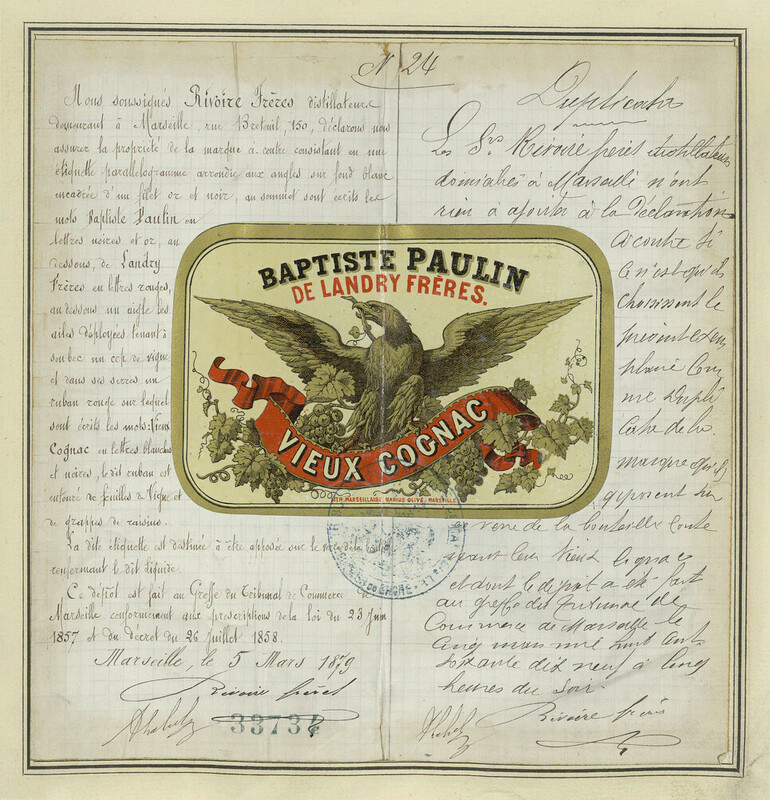 N 24
Nous soussignés Rivoire Frères distillateurs
demeurant à Marseille, rue Breteuil, 150, déclarons nous
assurer la propriété de la marque ci contre consistant en une
étiquette parallelogramme arrondie aux angles sur fond blanc
encadrée d'un filet or et noir, au sommet sont écrits les
mots Baptiste Paulin en
lettres noires et or, au
dessous, de Landry
Frères en lettres rouges,
au dessous un aigle les
ailes déployées tenant à
son bec un cep de vigne
et dans ses serres un
ruban rouge sur lequel
sont écrits les mots: Vieux
Cognac en lettres blanches
et noires, le dit ruban est
entouré de feuilles de Vigne et
de grappes de raisins.
La dite étiquette est destinée à être apposée sur le verre de la bouteille
renfermant le dit liquide.
Ce dépôt est fait au Greffe du Tribunal de Commerce
Marseille conformément aux prescriptions de la loi du 23 Juin
1857 et du Décret du 26 Juillet 1858.
Marseille, le 5 Mars 1879
Rivoire frères
33734
BAPTISTE PAULIN
DE LANDRY FRÈRES.
VIEUX COGNAC
MARSEILLAISE, MARIUS OLIVE, MARSEILLE
Duplicata
Les Srs Rivoire frères distillateurs
domiciliés à Marseille n'ont
rien à ajouter à la Déclaration
ci contre si
ce n'est qu'ils
choisissent le
présent exem
plaire com
me Dupli
cata de la
marque qu'ils
apposent sur
le verre de la bouteille conte
nant leur vieux cognac
et dont le dépôt a été fait
au greffe du tribunal de
Commerce de Marseille le
cinq mars mil huit cent
soixante dix neuf à cinq
heures du soir
Rivoire frères